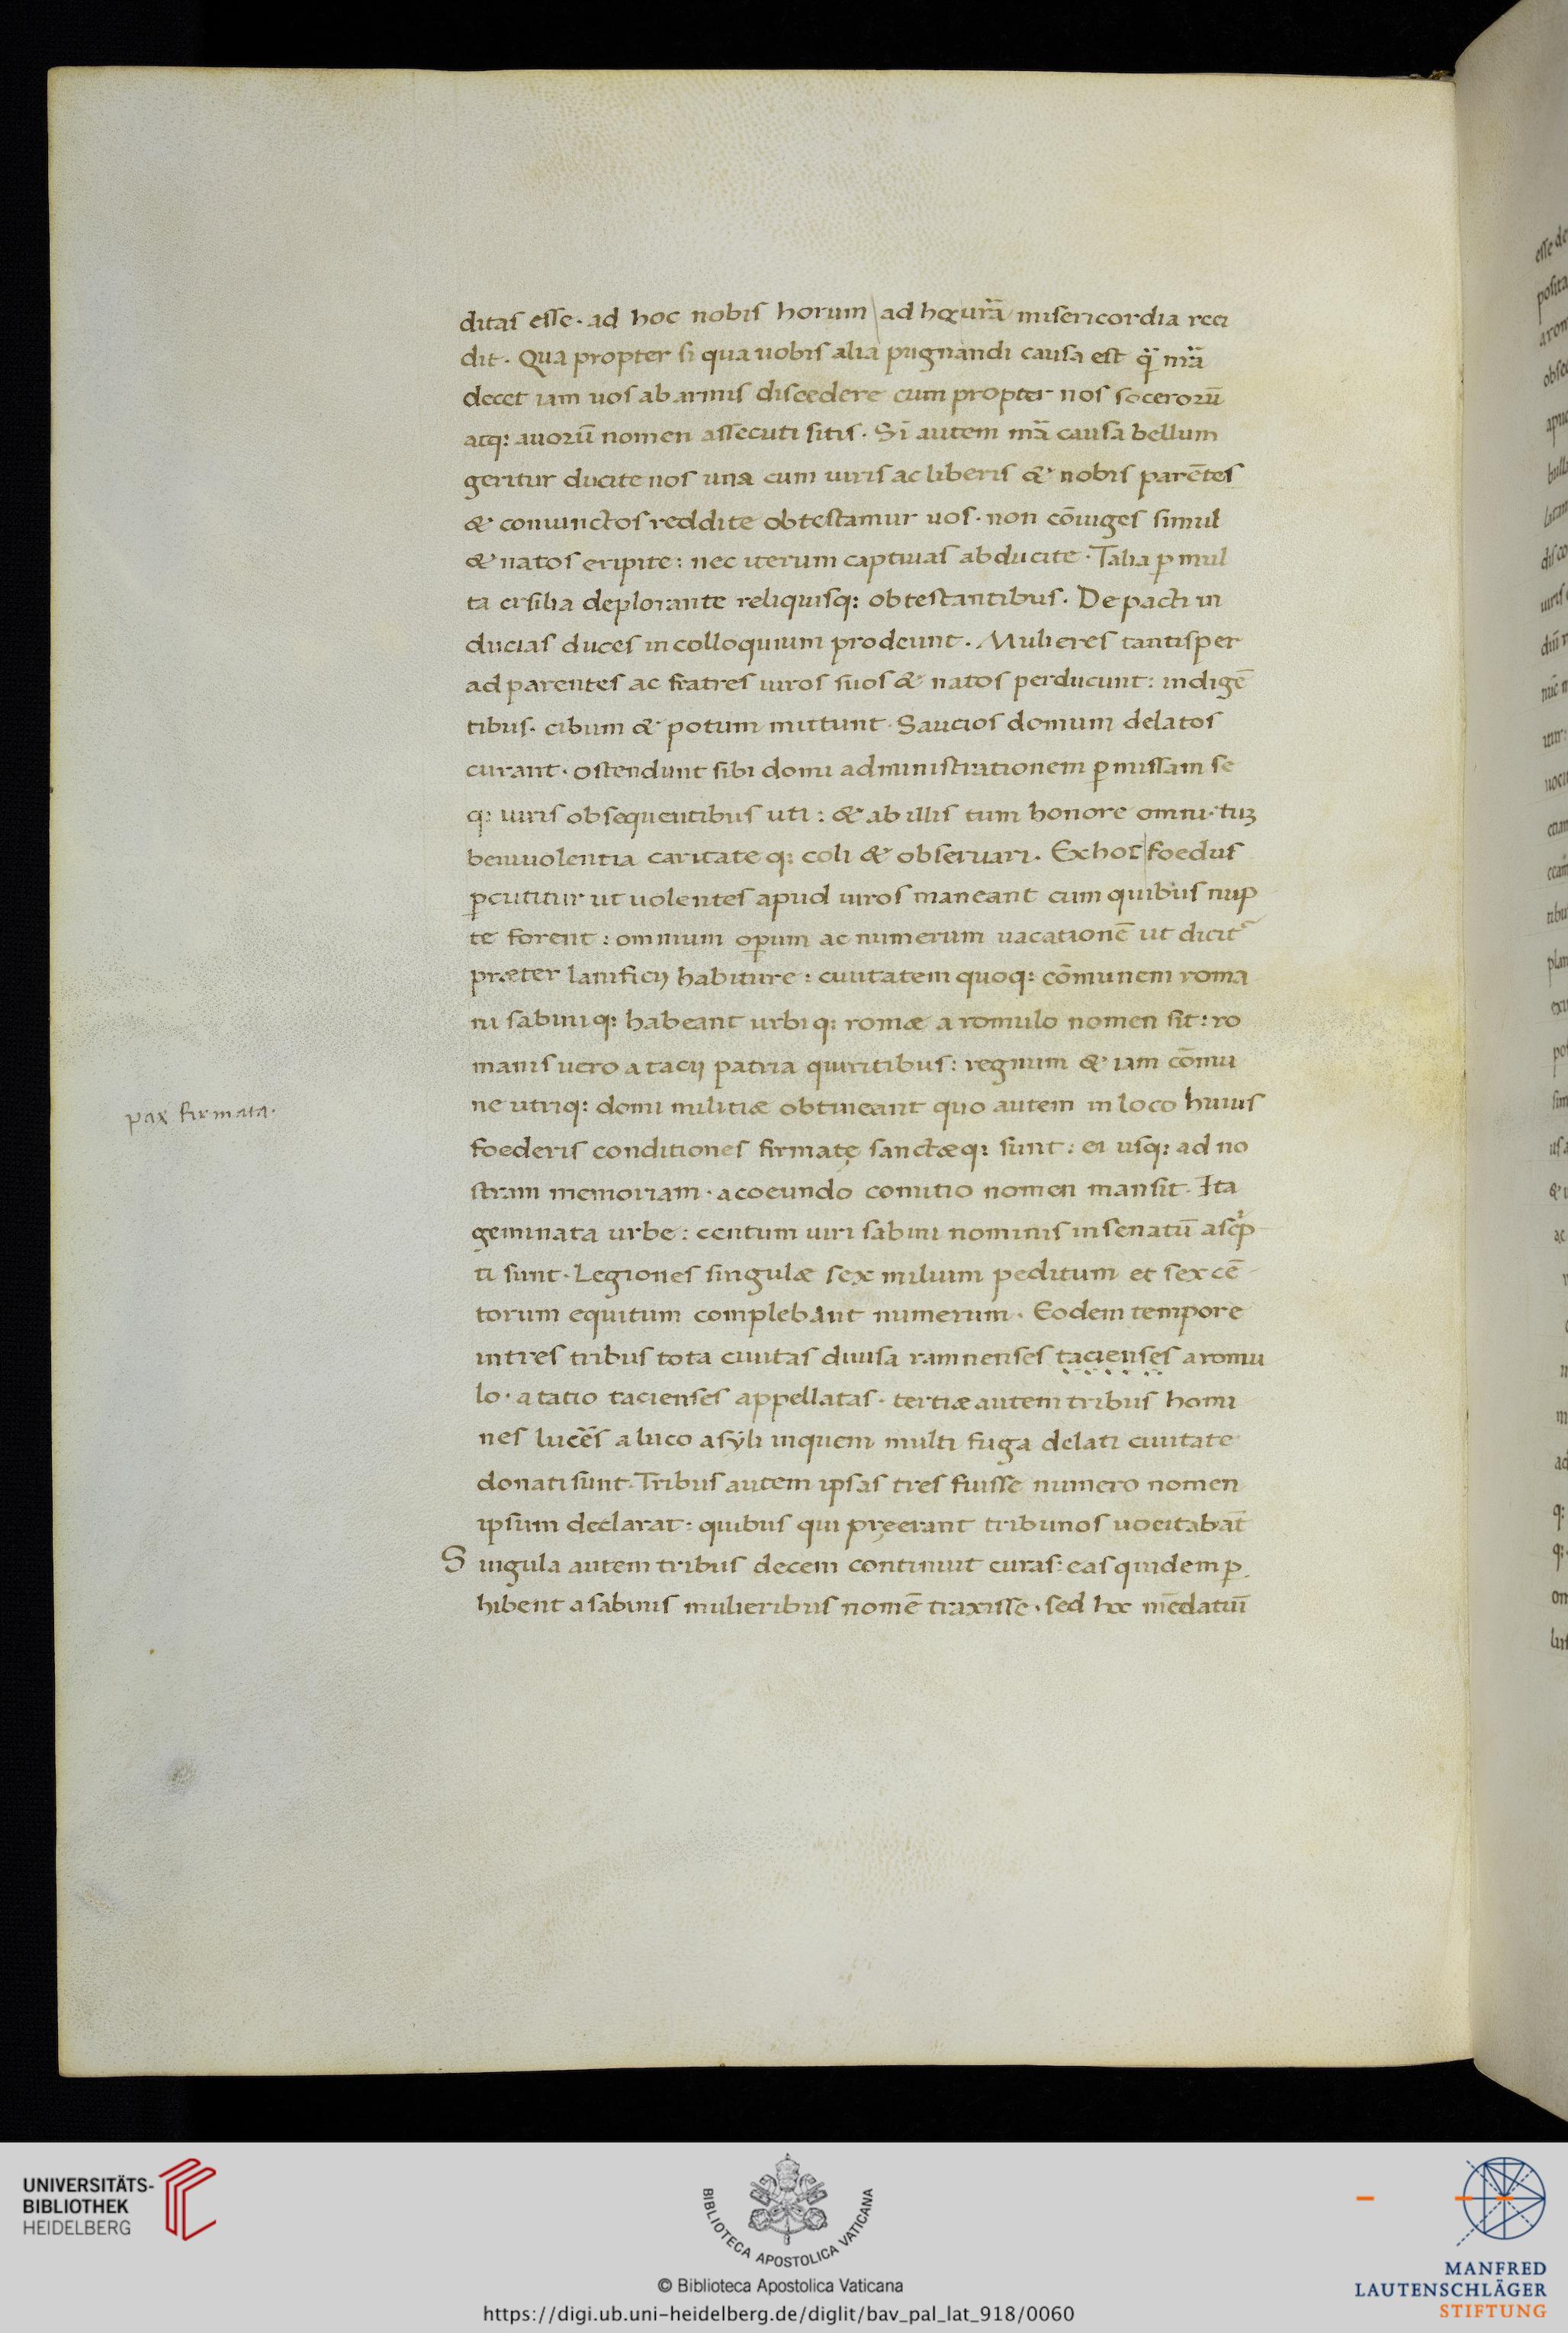 ditas esse · ad hoc nobis horum ad hęc ura̅ misericordia reci
dit · Qua propter si qua uobis alia pugnandi causa est q̅ nr̅a
decet iam uos ab armis discedere cum propter nos soceroru̅
atq: auoru̅ nomen assecuti sitis · Si autem nr̅a causa bellum
geritur ducite nos una cum uiris ac liberis & nobis pare̅tes
& coniunctos reddite obtestamur uos · non co̅iuges simul
& natos eripite : nec iterum captiuas abducite · Talia p̲ mul
ta ersilia deplorante reliquisq: obtestantibus · De pacti in
ducias duces in colloquium prodeunt · Mulieres tantisper
ad parentes ac fratres uiros suos & natos perducunt : indige̅
tibus · cibum & potum mittunt · Saucios domum delatos
curant · ostendunt sibi domi administrationem p̲missam se
q: uiris obsequentibus uti : & ab illis tum honore omni · tuꝫ
beniuolentia caritate q: coli & obseruari · Ex hoc foedus
p̲cutitur ut uolentes apud uiros maneant cum quibus nup
te forent : omnium op̲um ac numerum uacatione̅ ut dicit᷑
præter lanificij habiture : ciuitatem quoq: co̅munem roma
ni sabini q: habeant urbi q: romæ a romulo nomen sit : ro
manis uero a tacij patria quiritibus : regnum & iam co̅mu
ne utriq: domi militiæ obtineant quo autem in loco huius
foederis conditiones firmatę sanctæq: sunt : ei usq: ad no
stram memoriam · a coeundo comitio nomen mansit · Ita
geminata urbe : centum uiri sabini nominis in senatu̅ ascͥp
ti sunt · Legiones singulæ sex milium peditum et sex ce̅
torum equitum complebant numerum · Eodem tempore
in tres tribus tota ciuitas diuisa ramnenses tacienses a romu
lo · a tatio tacienses appellatas · tertiæ autem tribus homi
nes luce̅s a luco asẏli inquem multi fuga delati ciuitate
donati sunt · Tribus autem ipsas tres fuisse numero nomen
ipsum declarat : quibus qui pręerant tribunos uocitaba̅t
Singula autem tribus decem continuit curas : eas quidem p̲
hibent a sabinis mulieribus nome̅ traxisse · sed hoc me̅datiu̅
pax firmata ·
UNIVERSITÄTS-
BIBLIOTHEK
HEIDELBERG
BIBLIOTECA APOSTOLICA VATICANA
© Biblioteca Apostolica Vaticana
https://digi.ub.uni-heidelberg.de/diglit/bav_pal_lat_918/0060
MANFRED
LAUTENSCHLÄGER
STIFTUNG